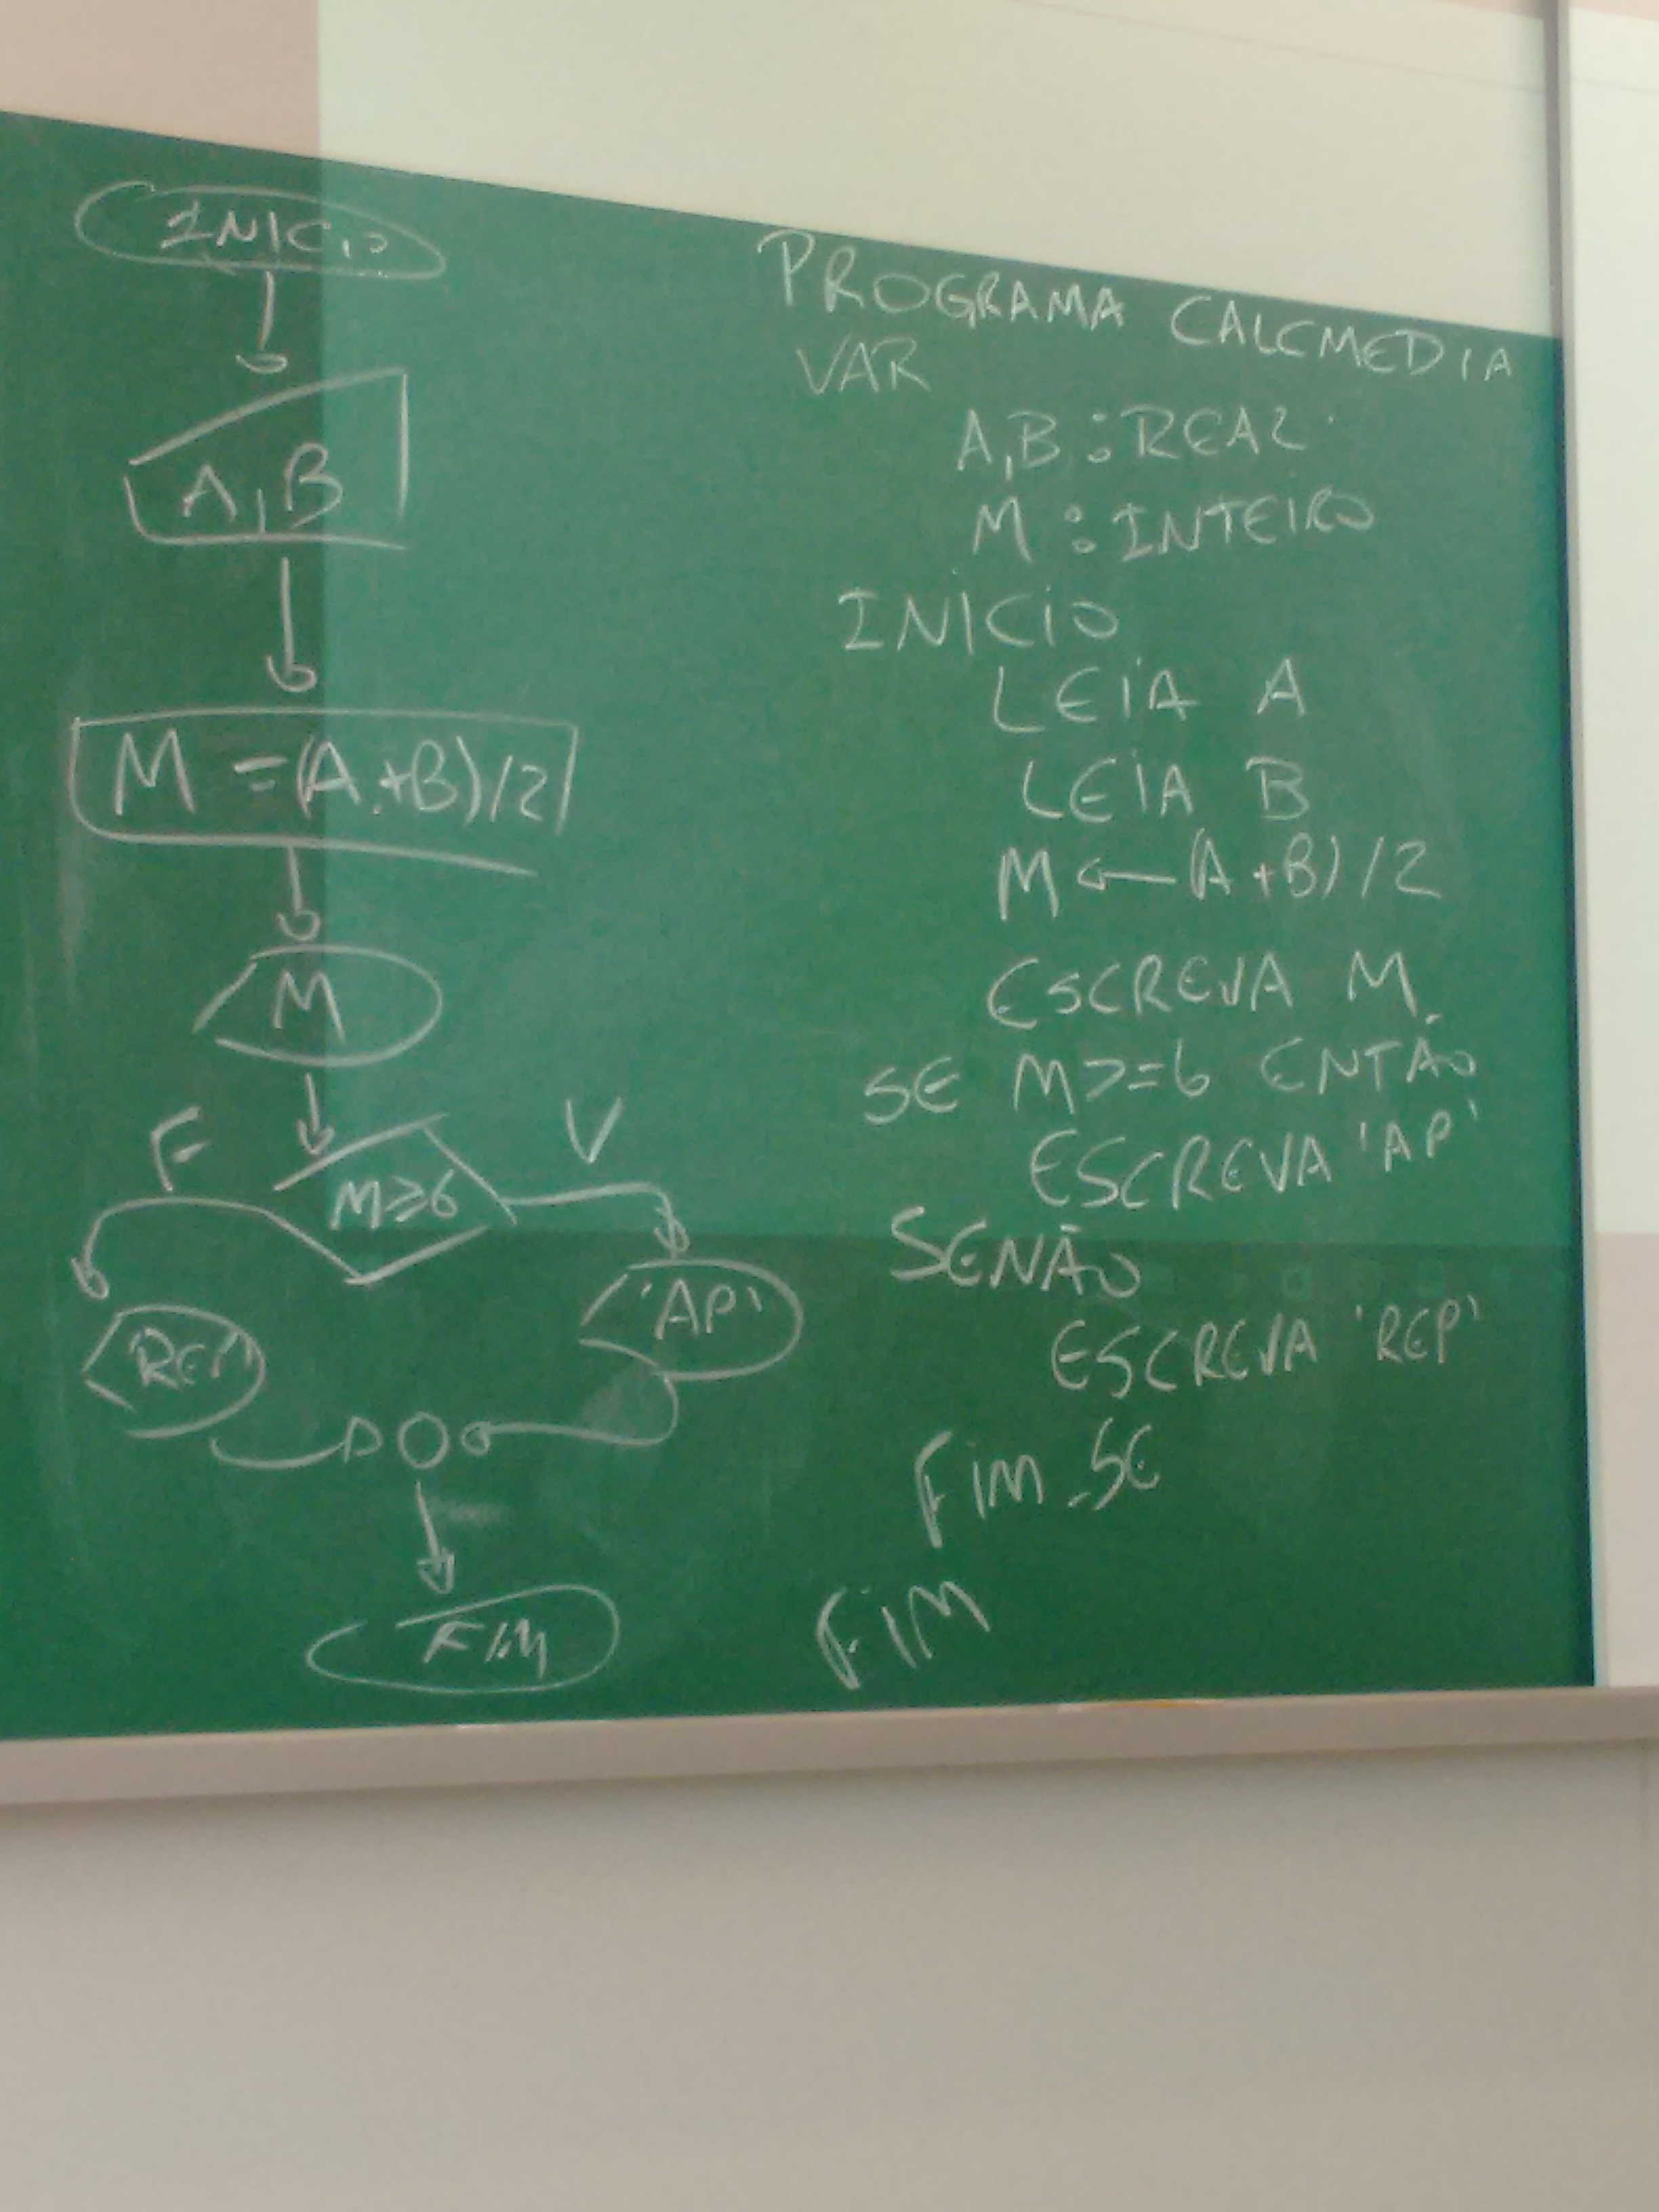 INICIO
A,B
M =(A+B)/2
M
F
V
M≥6
'REP'
'AP'
FIM
PROGRAMA CALCMEDIA
VAR
A,B : REAL
M : INTEIRO
INICIO
LEIA A
LEIA B
M ← (A+B)/2
ESCREVA M
SE M>=6 ENTÃO
ESCREVA 'AP'
SENÃO
ESCREVA 'REP'
FIM_SE
FIM